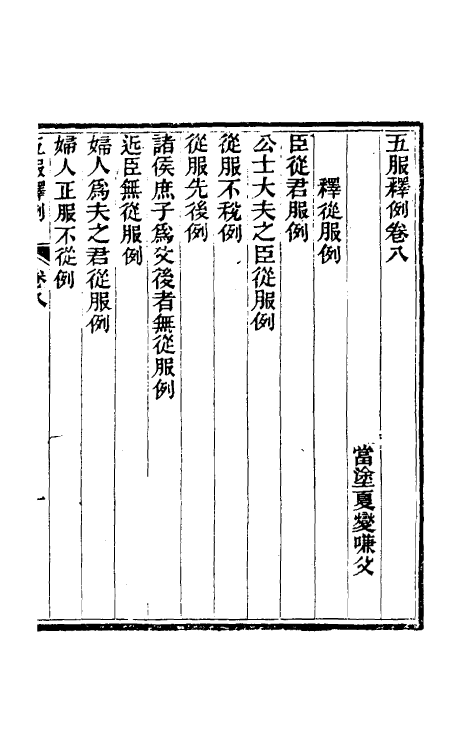 五服釋例卷八
當塗夏燮嗛父
釋從服例
臣從君服例
公士大夫之臣從服例
從服不稅例
從服先後例
諸侯庶子爲父後者無從服例
近臣無從服例
婦人爲夫之君從服例
婦人正服不從例
五服釋例 卷八 一